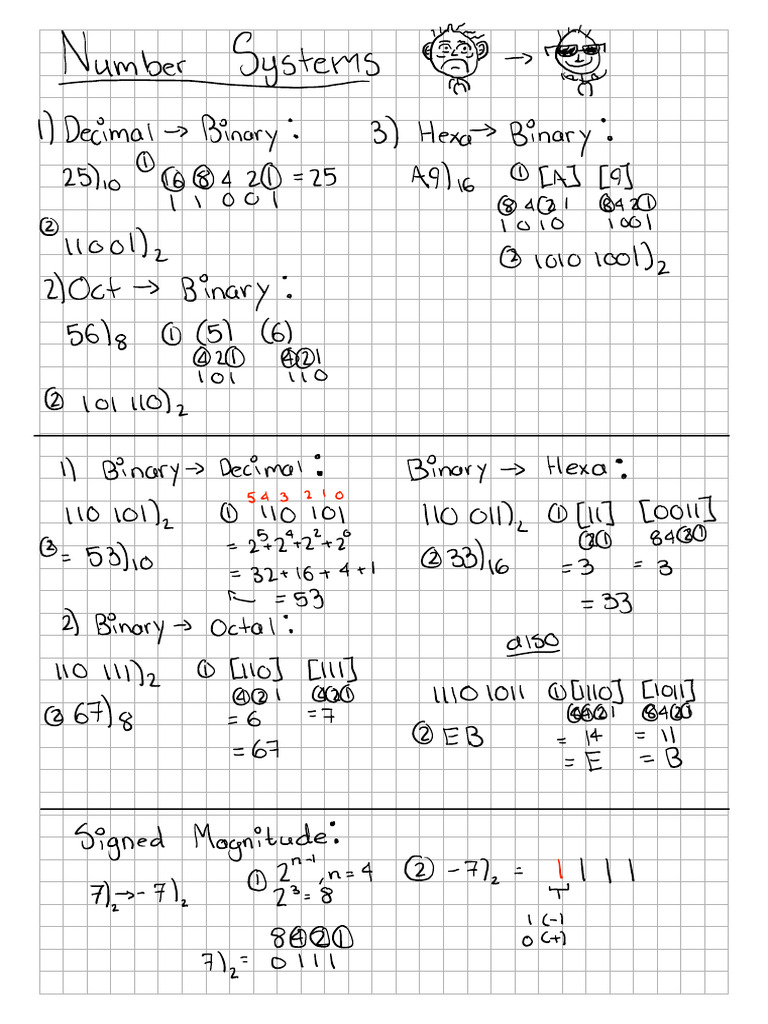 Number Systems →
1) Decimal → Binary:
25)10 ① ⑯ ⑧ 4 2 ① = 25
1 1 0 0 1
② 11001)2
2) Oct → Binary:
56)8 ① (5) (6)
④ 2 ① ④ ② 1
1 0 1 1 1 0
② 101 110)2
3) Hexa → Binary:
A9)16 ① [A] [9]
⑧ 4 ② 1 ⑧ 4 2 ①
1 0 1 0 1 0 0 1
② 1010 1001)2
1) Binary → Decimal:
5 4 3 2 1 0
110 101)2 ① 110 101
= 2⁵+2⁴+2²+2⁰
② = 53)10
= 32+16+4+1
= 53
2) Binary → Octal:
110 111)2 ① [110] [111]
④ ② 1 ④ ② ①
② 67)8 = 6 = 7
= 67
Binary → Hexa:
110 011)2 ① [11] [0011]
② ① 8 4 ② ①
② 33)16 = 3 = 3
= 33
also
1110 1011 ① [1110] [1011]
⑧ ④ ② 1 ⑧ 4 ② ①
② EB = 14 = 11
= E = B
Signed Magnitude:
7)2 → -7)2 ① 2ⁿ⁻¹, n = 4
2³ = 8
8 ④ ② ①
7)2 = 0 1 1 1
② -7)2 = 1 1 1 1
1 (-)
0 (+)